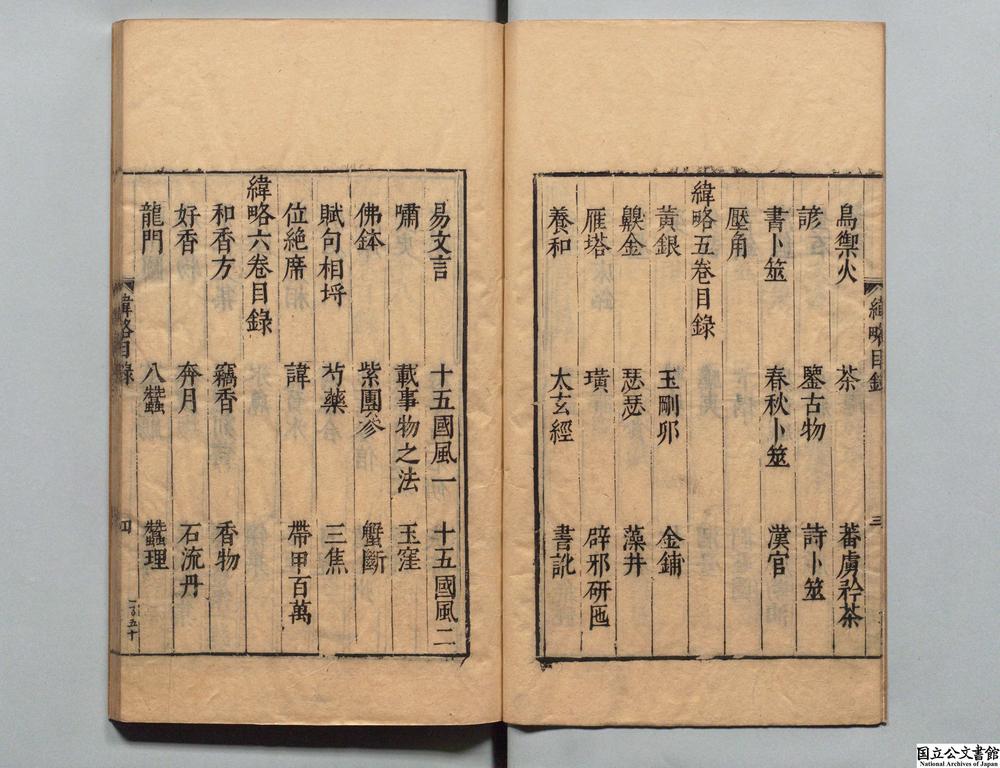 鳥禦火 茶 蕃虜矜茶
諺 鑒古物 詩卜筮
書卜筮 春秋卜筮 漢官
壓角
緯略五卷目錄
黃銀 玉剛卯 金鋪
鷃金 瑟瑟 藻井
雁塔 璜 辟邪研匜
養和 太玄經 書訛
緯略目錄 三
易文言 十五國風一 十五國風二
嘯 載事物之法 玉窪
佛鉢 紫團參 蟹斷
賦句相埒 芍藥 三焦
位絕席 諱 帶甲百萬
緯略六卷目錄
和香方 竊香 香物
好香 奔月 石流丹
龍門 八蠶 蠶理
緯略目錄 四
国立公文書館
National Archives of Japan